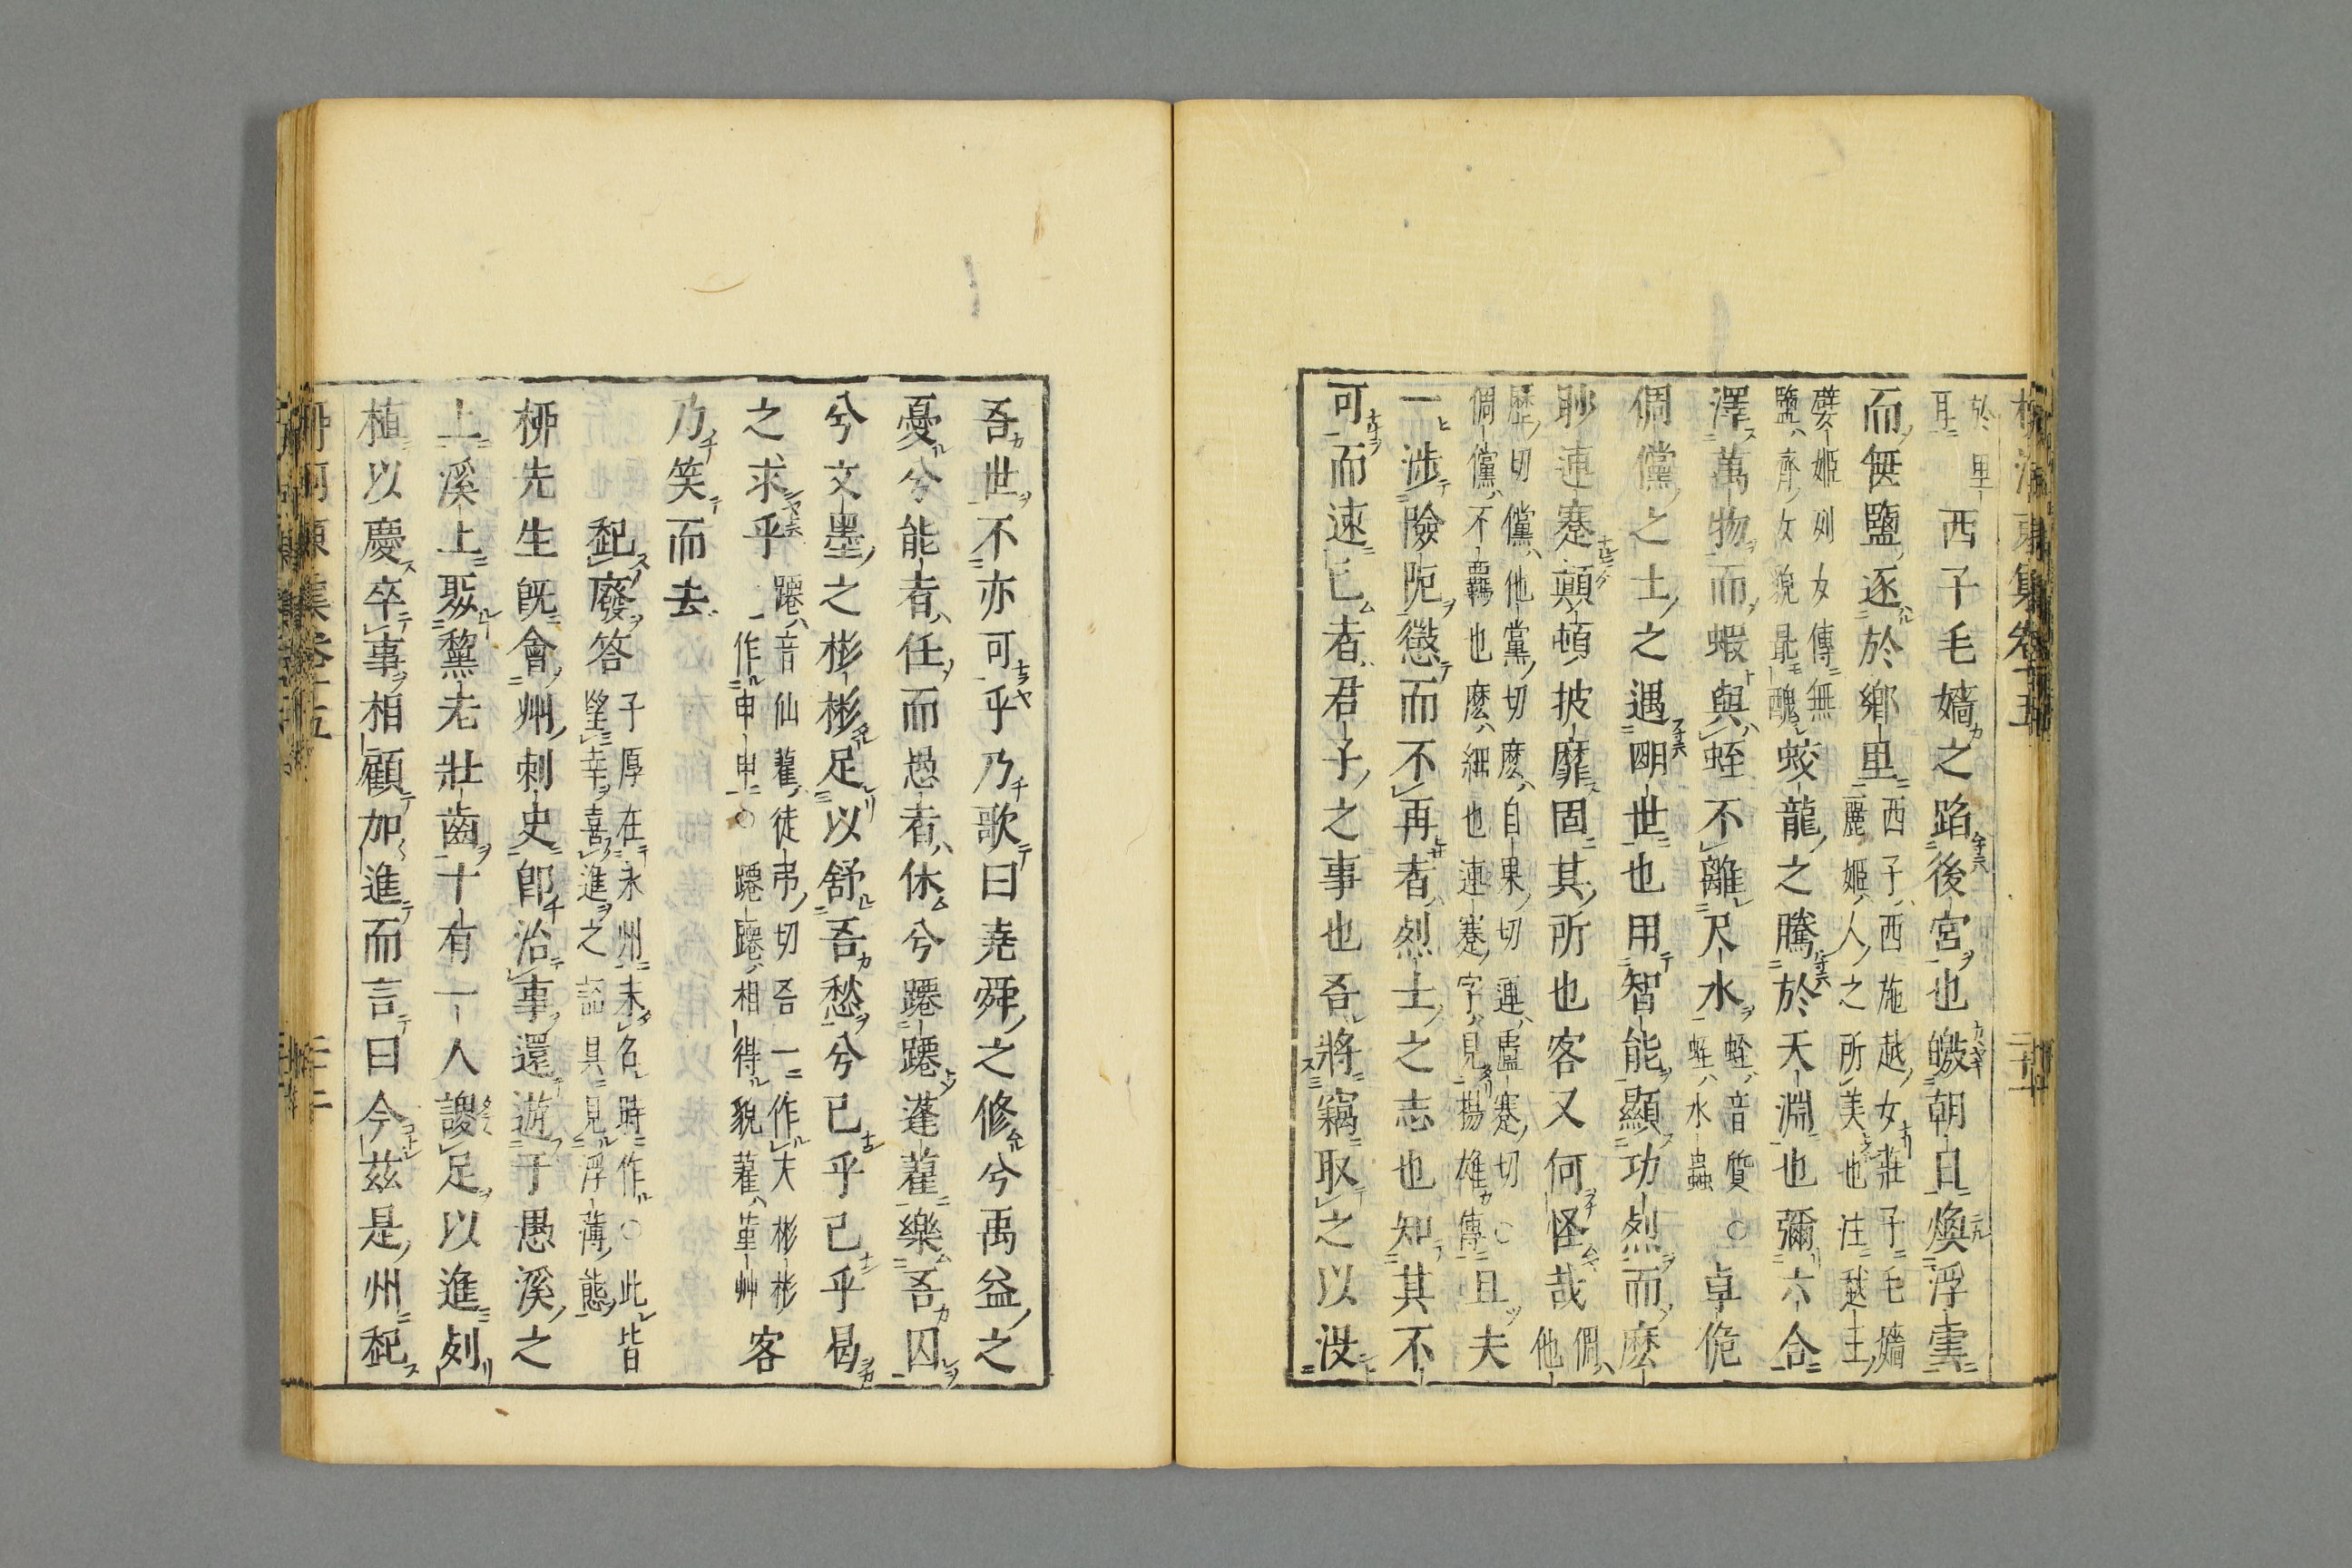 柳河東集卷十五
於里
耳 西子毛嬙之蹈後宮也皦朝日煥浮雲
而無鹽逐於鄉里 西子西施越女莊子毛嬙
麗姬人之所美也注越王
嬖姬列女傳無
鹽齊女貌最醜 蛟龍之騰於天淵也彌六合
澤萬物而蝦與蛭不離尺水 蛭音質
蛭水蟲 ○卓佹
倜儻之士之遇明世也用智能顯功烈而麽
眇連蹇顛頓披靡固其所也客又何怪哉 倜
他
歷切儻他黨切麽自果切連盧蹇切○
倜儻不羈也麽細也連蹇字見揚雄傳 且夫
一涉險阨懲而不再者烈士之志也知其不
可而速已者君子之事也吾將竊取之以沒
吾世不亦可乎乃歌曰堯舜之修兮禹益之
憂兮能者任而愚者休兮躚躚蓬藋樂吾囚
兮文墨之彬彬足以舒吾愁兮已乎已乎曷
之求乎 躚音仙藋徒弔切吾一作夫彬彬
一作申申○躚躚相得貌藋堇艸 客
乃笑而去
起廢答 子厚在永州未召時作○此皆
望幸喜進之詞具見浮薄態
柳先生既會州刺史卽治事還遊于愚溪之
上溪上聚黧老壯齒十有一人謖足以進列
植以慶卒事相顧加進而言曰今茲是州起
柳河東集卷十五